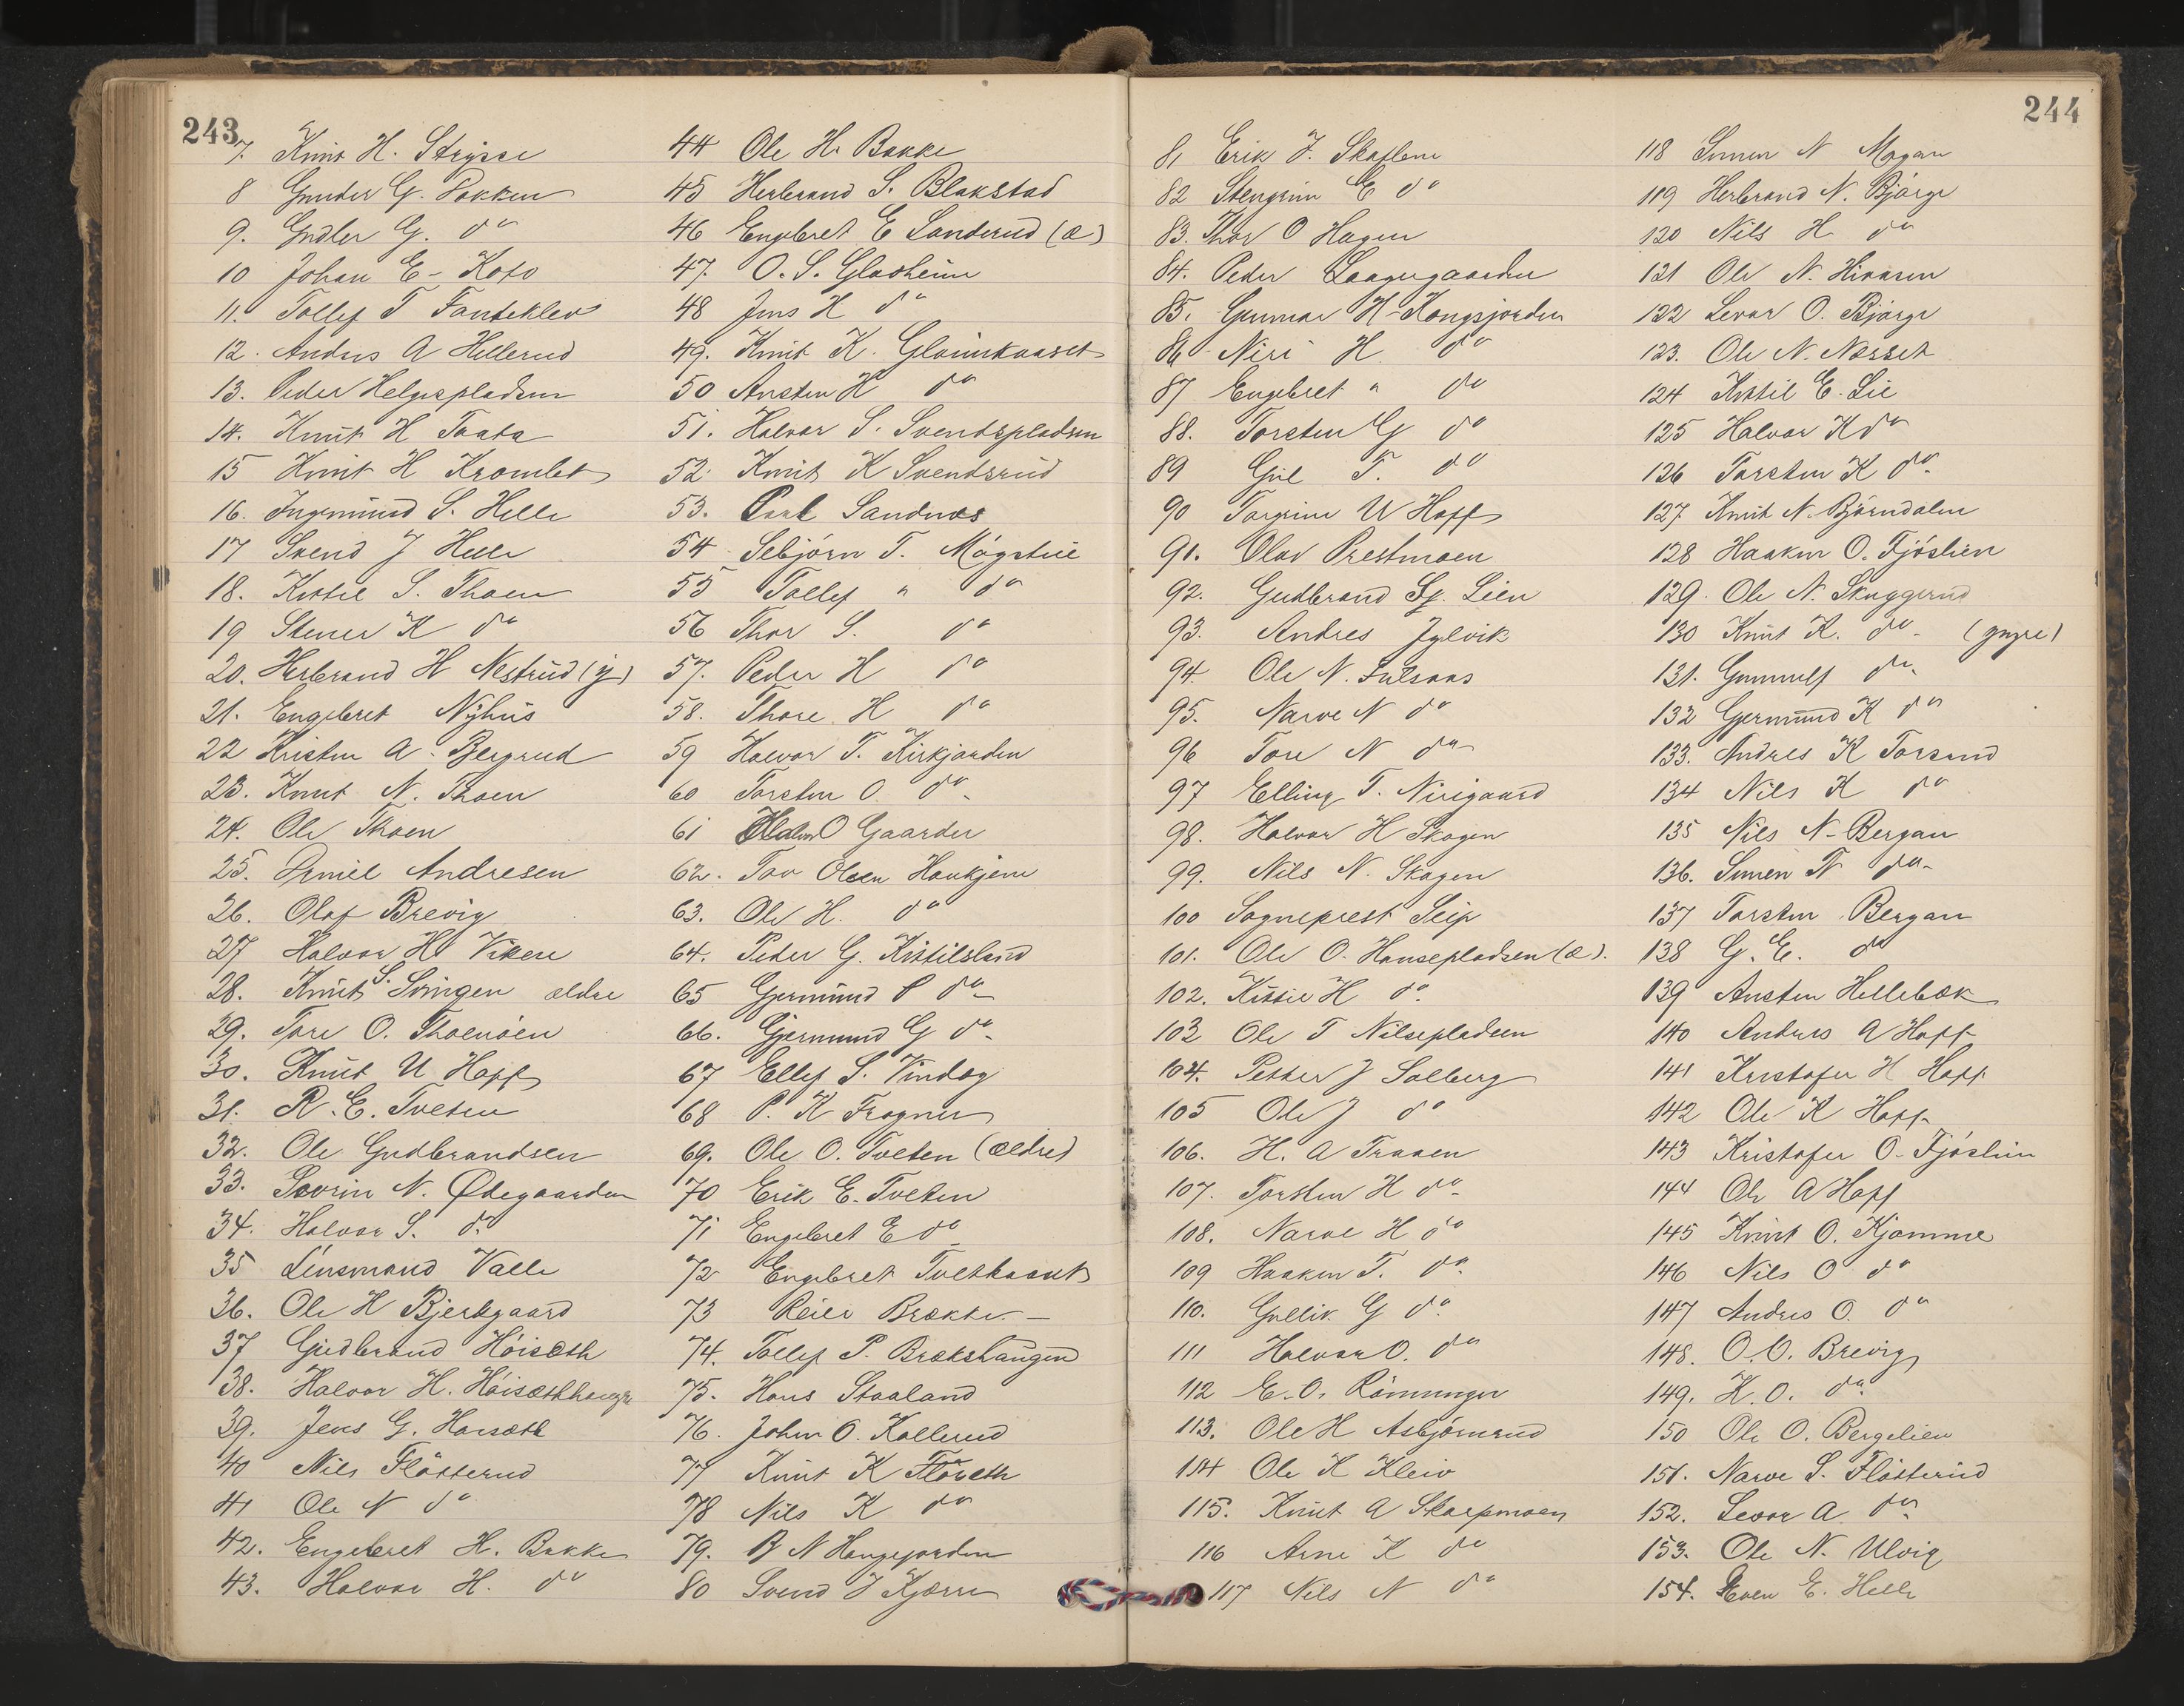 243
7. Knut H. Strysse
8 Gunder G. Bakken
9. Gudler G. do
10 Johan E. Koto
11. Tollef T Fanteklev
12. Andres A Hellerud
13. Peder Helgespladsen
14. Knut H Taata
15 Knut H Kromlet
16. Ingemund S. Helle
17 Svend J Helle
18. Kittil S. Thoen
19 Stener K do
20. Herbrand H Nestrud (y)
21. Engebret Nyhus
22 Kristen A. Bergrud
23. Knut N. Thoen
24. Ole Thoen
25. Emil Andresen
26. Olaf Brevig
27 Halvor H. Vikere
28. Knut S. Svingen ældre
29. Tore O. Thoenöen
30. Knut U Hoff
31. R. E. Tveten
32. Ole Gudbrandsen
33. Sevrin N. Ødegaarden
34. Halvor S. do
35 Lensmand Valle
36. Ole H Bjerkgaard
37 Gudbrand Höisæth
38. Halvor H. Höisæthhaugen
39. Jens G. Hoisæth
40 Nils Flåtterud
41 Ole N do
42. Engebret H. Bakke
43. Halvor H. do
44 Ole H. Bakke
45 Herbrand S. Blakstad
46 Engebret E Sanderud (æ)
47. O. S. Gladheim
48 Jens H do
49. Knut K. Gloimkaaset
50 Ansten H do
51. Halvor S. Svendspladsen
52. Knut K Svendsrud
53. Paul Sandnæs
54 Sebjörn T. Mögstue
55 Tollef " do
56 Thor S. do
57. Peder H do
58. Thore H do
59 Halvor T. Kirkjorden
60 Torsten O. do
61 Halvor O Gaarder
62. Tov Olsen Haukjem
63. Ole H. do
64. Peder G. Kittilsland
65 Germund P do
66. Gjermund G do
67 Ellef S. Vindeg
68 P. K Frogner
69. Ole O. Tveten (ældre)
70 Erik E. Tveten
71 Engebret E do
72 Engebret Tvethaant
73 Reier Brække
74. Tollef P. Brækshaugen
75. Hans Staaland
76. John O. Kollerud
77 Knut K Flåseth
78 Nils K do
79. B N Haugejorden
80 Svend J Kjærn
244
81 Erik J. Skaflem
82 Stengrim E do
83. Thor O Hagen
84. Peder Laagegaarden
85. Gunnar H Kongsjorden
86 Niri H do
87 Engebret " do
88. Torsten G do
89 Gul T. do
90 Torgrim U Hoff
91. Olav Prestmoen
92. Gudbrand Lien
93. Andres Jylvik
94 Ole N. Fulsaas
95. Narve N do
96 Tore N do
97 Elling T. Nirigaard
98. Halvor H Skogen
99. Nils N. Skogen
100 Sogneprest Seip
101. Ole O. Hansepladsen (æ).
102. Kittil H do
103 Ole T Nilsepladsen
104. Petter J Solberg
105 Ole J do
106. H. A Traaen
107. Torsten H do
108. Narve H do
109 Haakon T. do
110. Gullik G do
111 Halvor O. do
112 E. O. Römunger
113. Ole H Asbjörnrud
114 Ole K Kleiv
115. Knut A Skarpmoen
116 Arne K do
117 Nils N do
118 Simen N Mogan
119 Herbrand N. Bjørge
120 Nils H do
121 Ole N. Hiaasen
122 Levor O. Bjørge
123. Ole N. Nørset
124 Kittil E. Lie
125 Halvor K do
126 Torsten K do
127. Knut N. Björndalen
128 Haakon O. Fjöslien
129. Ole N. Skuggerud
130 Knut K. do (yngre)
131. Gunnulf do
132 Gjermund K do
133. Andres K Torsrud
134 Nils K do
135 Nils N. Bergan
136. Simen N do
137 Torsten Bergan
138 G. E. do
139 Ansten Hellebæk
140 Andres A Hoff
141 Kristofer H Hoff
142 Ole K Hoff
143 Kristofer O. Fjöslien
144 Ole A Hoff
145 Knut O. Kjomme
146 Nils O do
147 Andres O. do
148. O. O. Brevig
149. K. O. do
150 Ole O. Bergelien
151. Narve S. Flåtterud
152. Levor A. do
153. Ole N. Ulvig
154. Even E. Helle